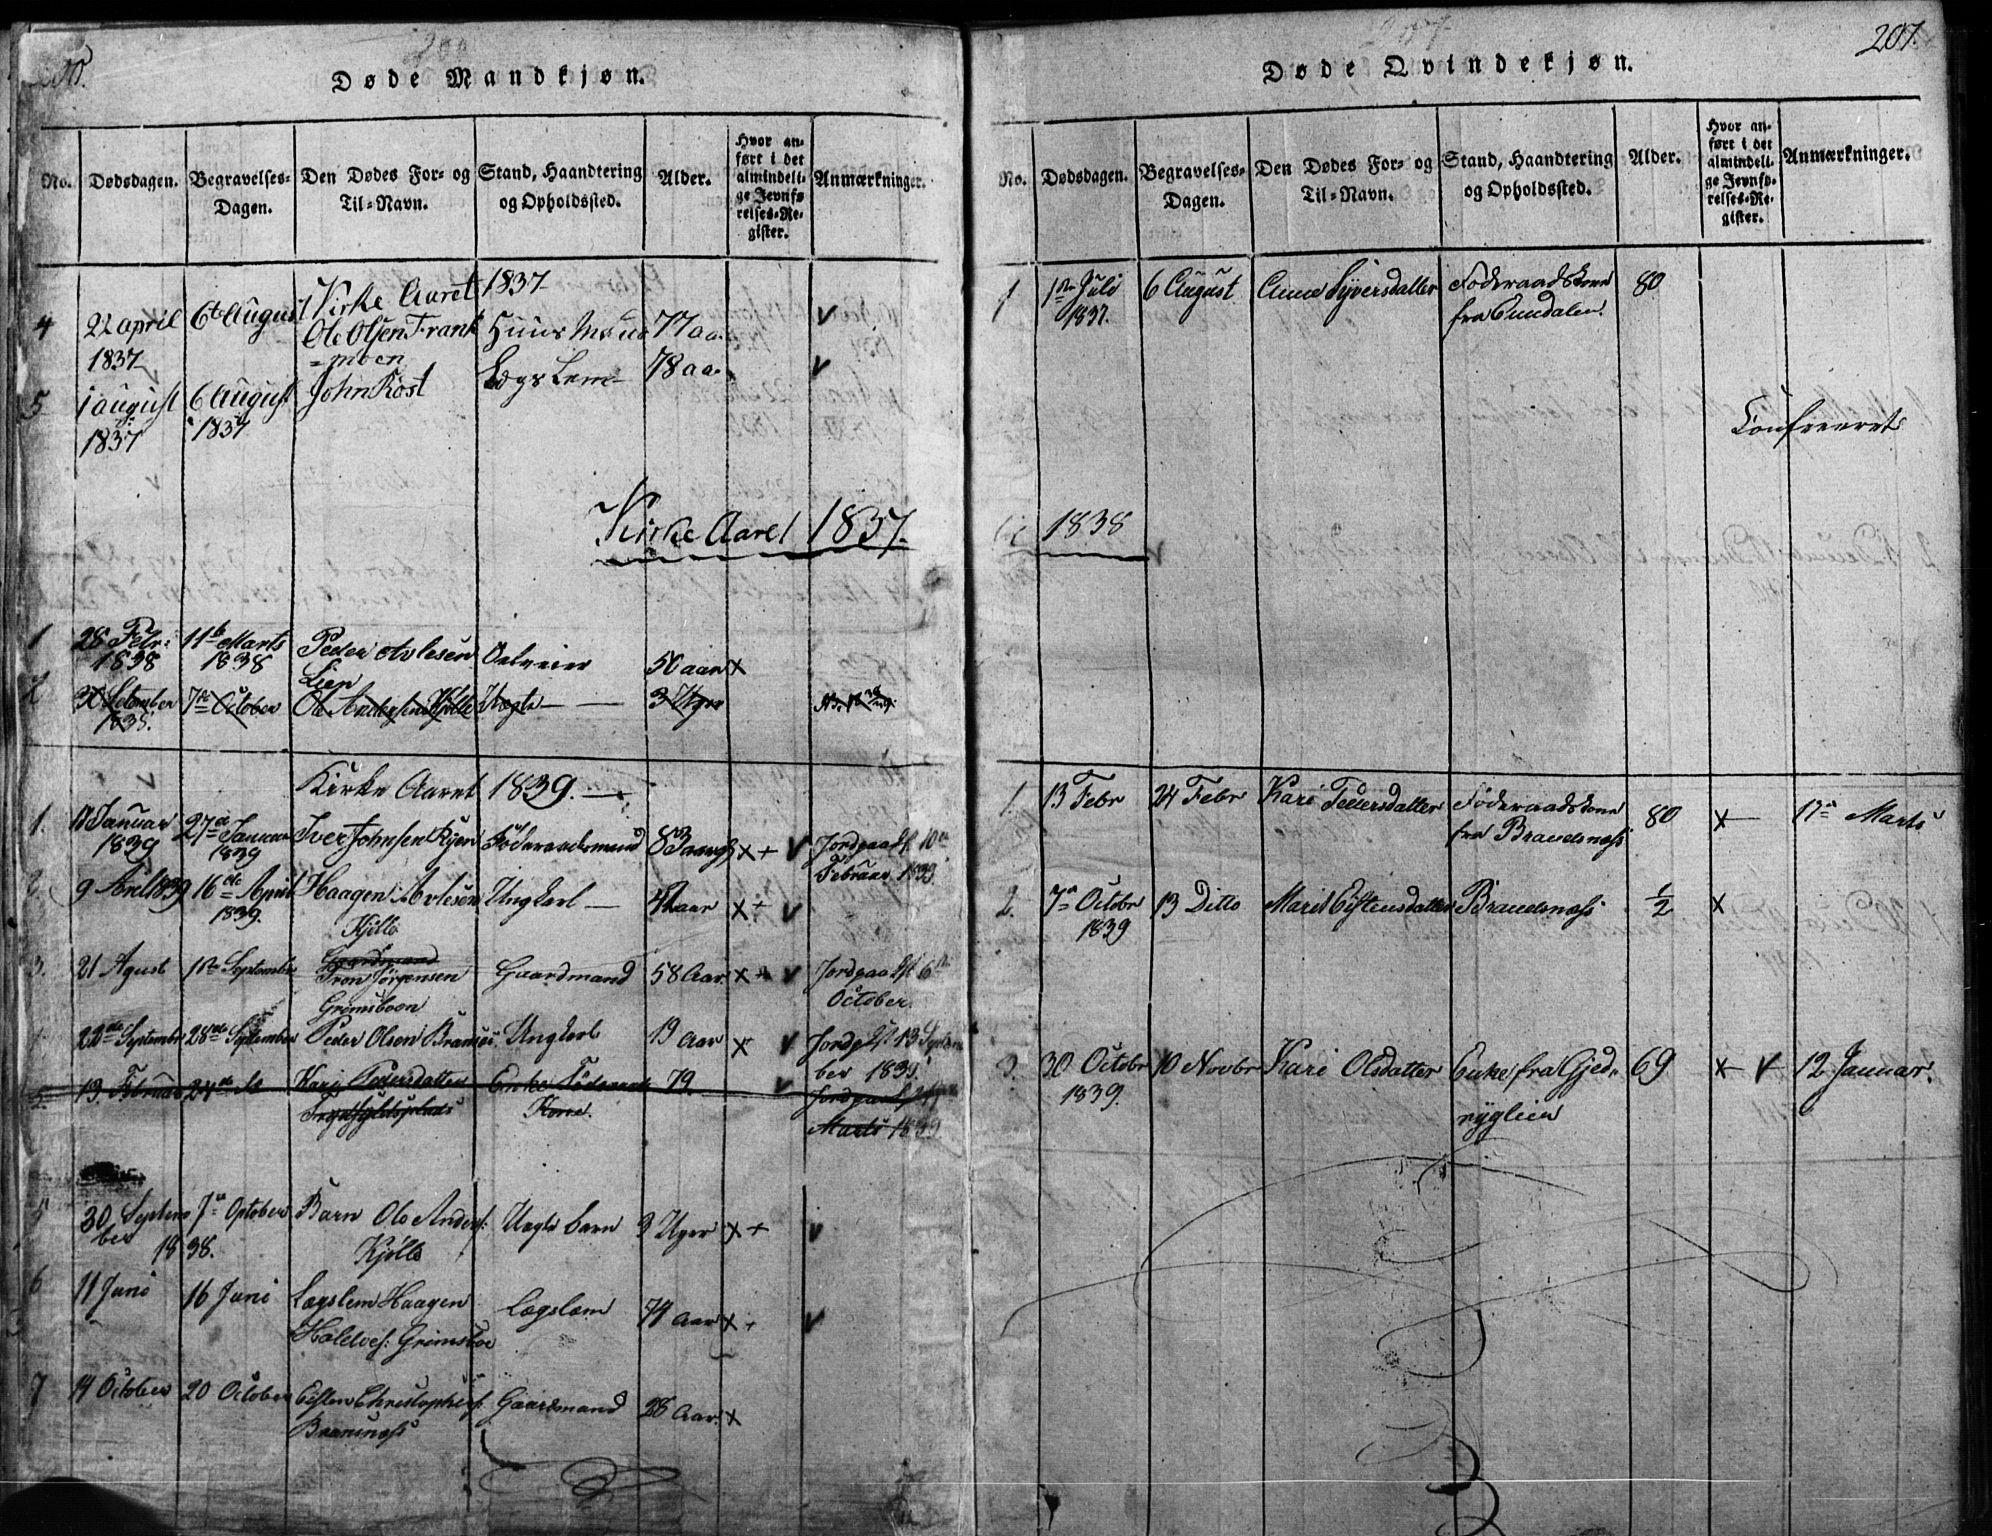 Døde Mandkjøn.
No. Dødsdagen. Begravelses-Dagen. Den Dødes For- og Til-Navn. Stand, Haandtering og Opholdssted. Alder. Hvor anført i det almindelige Jevnførelses-Register. Anmærkninger.
Kirke Aaret 1837
4 22 april 1837 6te August Ole Olsen Frank=moen Huusmand 77 aa. v
5 1 august 1837 6 August 1837 John Røst Lægs Lem 78 aa. v
Kirke Aaret 1837.
1 28 Febr: 1838 11te Marts 1838 Peder Avlesen Lien 50 aar x
2 30 Setember 1838. 7de October Ole Andersen Kjølle Uægte 3 Uger
Kirke Aaret 1839.
1. Januar 1839 27de Januar 1839 Iver Johnsen Føderaadsmand x + v Jordpaast 10de Februar
2. 9 April 1839 16de April 1839. Haagen Avlesen Kjølle Ungkarl x + v
3. 21 Agust 1te September Gaardmand
Tron Jørgensen Grimsboen Gaardmand 58 Aar. x + v Jordpaast 6te October.
22de Septembr 28de September Peder Olsen Ungkarl 19 Aar x v Jordp 13
5. 13. Februar 24de Kari Pedersdatter Enke Føderaads Kone. 79. v Marts 1839
5 30 September 1838. 7de October Barn Ole Anders: Kjølle Uægte barn 3 Uger x + v
6 11 Juni 16 Juni Lægslem Haagen Grimsboe Lægslem 74 Aar x + v
7 14 October 20 October Gaardmand 28 Aar. x
207.
Døde Qvindekjøn.
No. Dødsdagen. Begravelses-Dagen. Den Dødes For- og Til-Navn. Stand, Haandtering og Opholdssted. Alder. Hvor anført i det almindelige Jevnførelses-Register. Anmærkninger.
1 1te Juli 1837. 6 August Anne Syversdatter Føderaadskone 80
1838
1. 13 Febr 24 Febr Kari Pedersdatter Føderaadskone fra Brandsnæss 80 x 17de Marts
2. 7de Octobr 1839 13 Ditto Marit Eistensdatter Brandsnæss ½ x
3. 30 Octobr 1839. 10 Novbr Kari Olsdatter Enke fra Gjedryglien 69 x v 12 Januar.